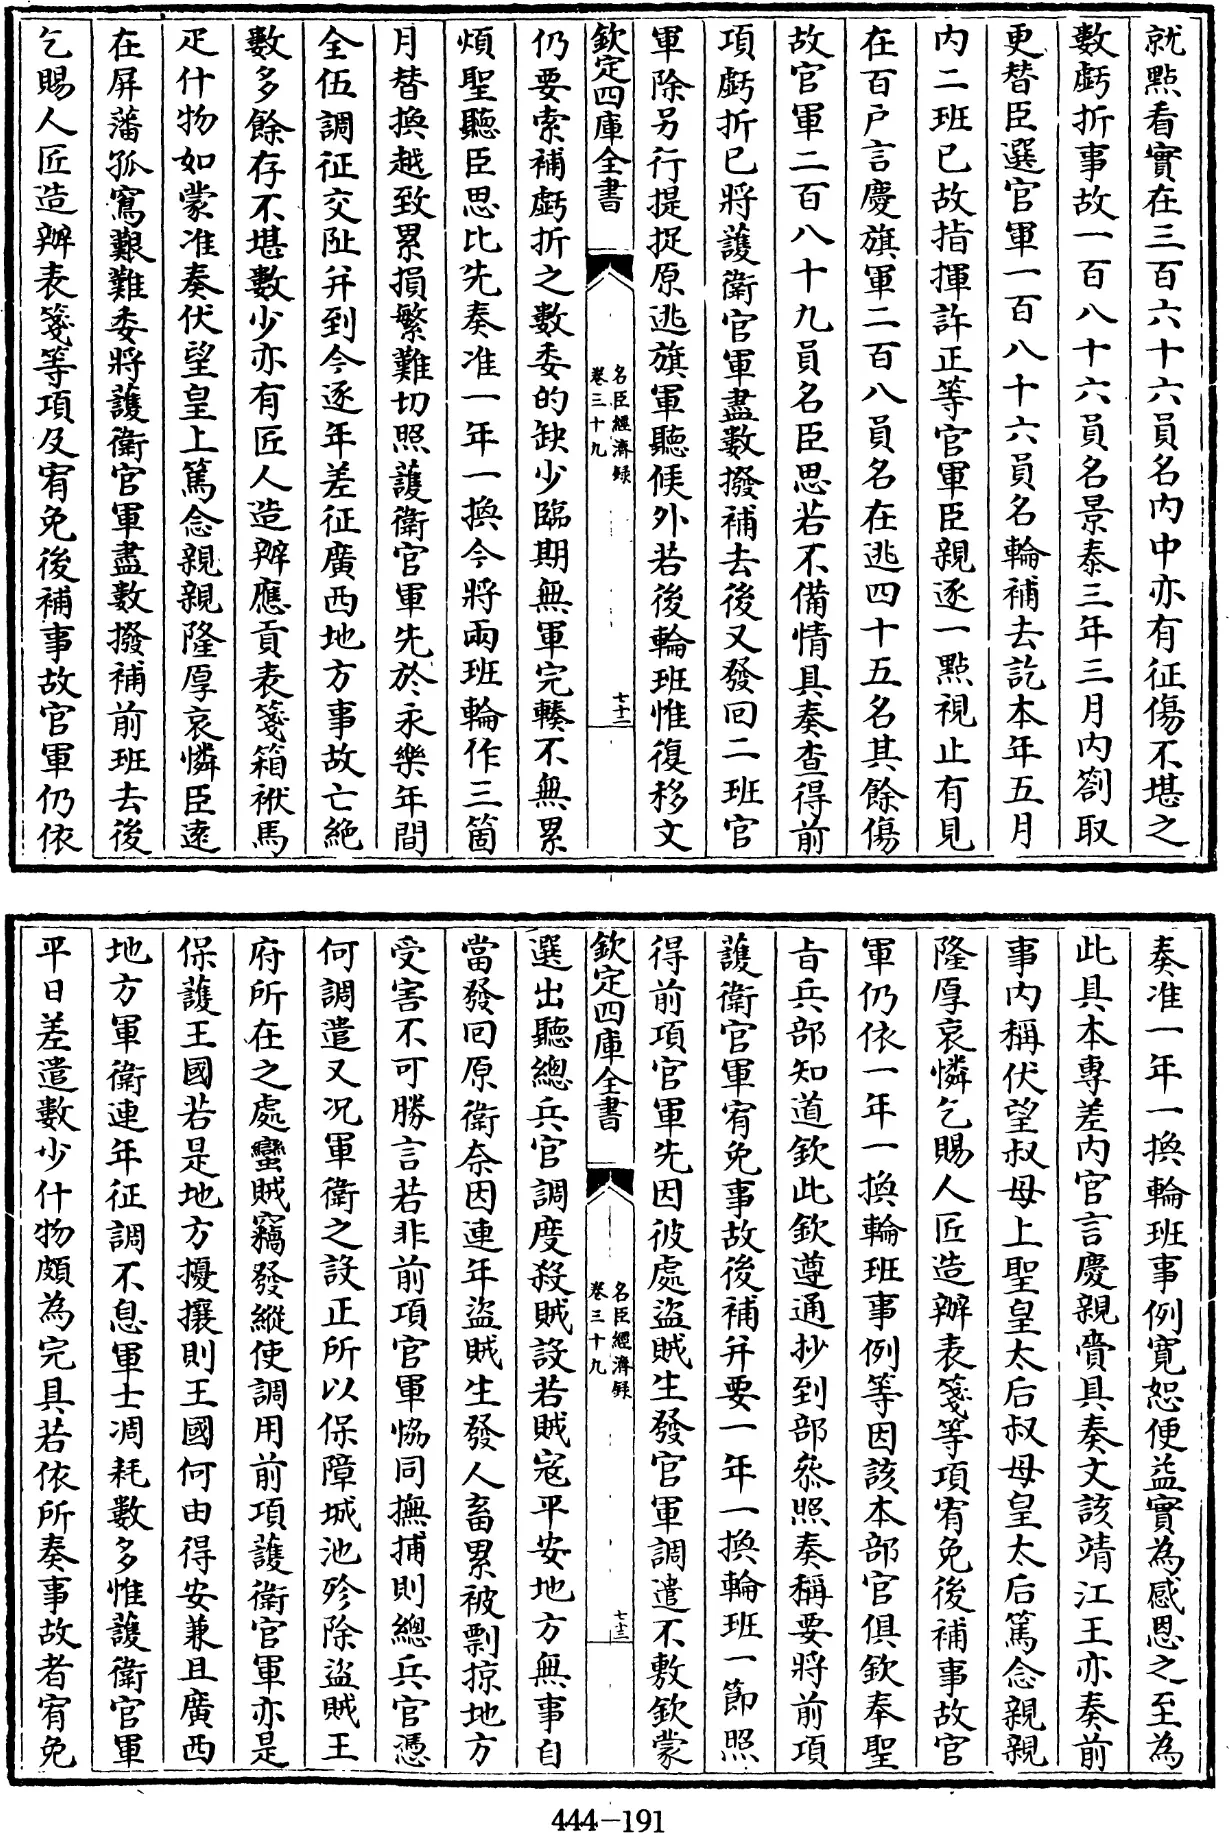 就點看實在三百六十六員名内中亦有征傷不堪之
數虧折事故一百八十六員名景泰三年三月内劄取
更替臣選官軍一百八十六員名輪補去訖本年五月
内二班已故指揮許正等官軍臣親逐一點視止有見
在百户言慶旗軍二百八員名在逃四十五名其餘傷
故官軍二百八十九員名臣思若不備情具奏查得前
項虧折已將護衛官軍盡數撥補去後又發回二班官
軍除另行提捉原逃旗軍聽候外若後輪班惟復移文
欽定四庫全書
名臣經濟録
卷三十九
七十二
仍要索補虧折之數委的缺少臨期無軍完輳不無累
煩聖聽臣思比先奏准一年一換今將兩班輪作三箇
月替換越致累損繁難切照護衛官軍先於永樂年間
全伍調征交阯并到今逐年差征廣西地方事故亡絶
數多餘存不堪數少亦有匠人造辦應貢表箋箱袱馬
疋什物如蒙准奏伏望皇上篤念親親隆厚哀憐臣逺
在屏藩孤寫艱難委將護衛官軍盡數撥補前班去後
乞賜人匠造辦表箋等項及宥免後補事故官軍仍依
奏准一年一換輪班事例寛恕便益實為感恩之至為
此具本專差内官言慶親賫具奏文該靖江王亦奏前
事内稱伏望叔母上聖皇太后叔母皇太后篤念親親
隆厚哀憐乞賜人匠造辦表箋等項宥免後補事故官
軍仍依一年一換輪班事例等因該本部官俱欽奉聖
㫖兵部知道欽此欽遵通抄到部叅照奏稱要將前項
護衛官軍宥免事故後補并要一年一換輪班一節照
得前項官軍先因彼處盜賊生發官軍調遣不敷欽蒙
欽定四庫全書
名臣經濟録
卷三十九
七十三
選出聽總兵官調度殺賊設若賊冦平安地方無事自
當發回原衛奈因連年盜賊生發人畜累被剽掠地方
受害不可勝言若非前項官軍恊同撫捕則總兵官憑
何調遣又况軍衛之設正所以保障城池殄除盜賊王
府所在之處蠻賊竊發縱使調用前項護衛官軍亦是
保護王國若是地方擾攘則王國何由得安兼且廣西
地方軍衛連年征調不息軍士凋耗數多惟護衛官軍
平日差遣數少什物頗為完具若依所奏事故者宥免
444-191